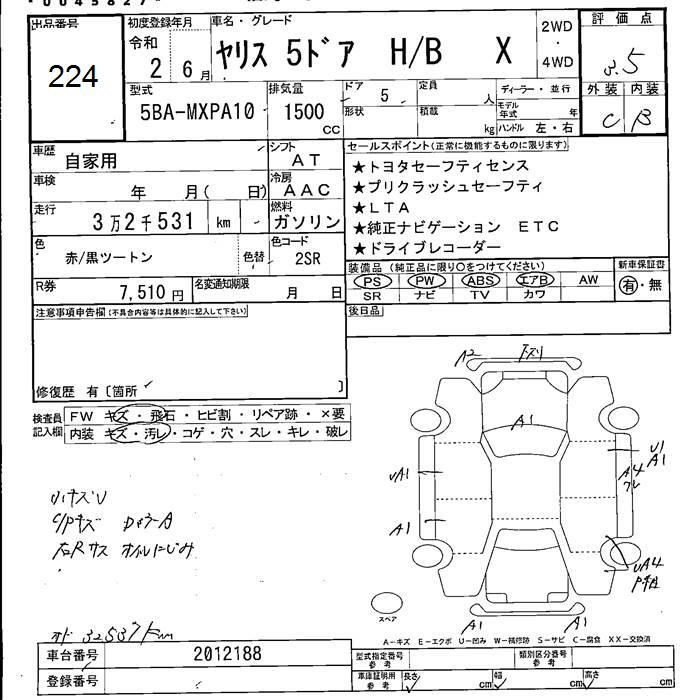 出品番号
224
初度登録年月
令和
2 6月
車名・グレード
ヤリス 5ドア H/B X
2WD
・
4WD
評価点
3.5
外装 内装
C B
型式
5BA-MXPA10
排気量
1500
CC
ドア 5
形状
定員
人
積載
kg
ディーラー・並行
モデル年式 年
ハンドル 左・右
車歴
自家用
シフト
AT
車検
年 月( 日)
冷房
AAC
走行
3万2千531 km
燃料
ガソリン
色
赤/黒ツートン
色替
色コード
2SR
R券
7,510円
名変通知期限
月 日
セールスポイント(正常に機能するものに限ります)
★トヨタセーフティセンス
★プリクラッシュセーフティ
★LTA
★純正ナビゲーション ETC
★ドライブレコーダー
装備品 (純正品に限り○をつけてください)
PS PW ABS エアB AW
SR ナビ TV カワ
新車保証書
有・無
後日品
注意事項申告欄(不具合内容等は具体的に記入して下さい)
修復歴 有〔箇所 〕
検査員記入欄
FW キズ・飛石・ヒビ割・リペア跡・×要
内装 キズ・汚レ・コゲ・穴・スレ・キレ・破レ
小キズU
C/Pキズ
右Rサス オイルにじみ
オド 32537km
A2
下スリ
A1
UA1
A1
U1
A1
A4
UA4
A1
A1
スペア
A-キズ E-エクボ U-凹み W-補修跡 S-サビ C-腐食 XX-交換済
車台番号 2012188
登録番号
型式指定番号
参考
類別区分番号
参考
車庫証明用
参考
長さ cm 幅 cm 高さ cm